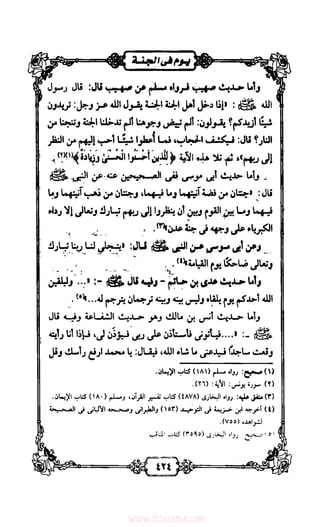 يوم فى الجنة
وأما حديث صهيب فرواه مسلم عن صهيب قال: قال رسول
الله ﷺ: «إذا دخل أهل الجنة الجنة يقول الله عز وجل: تريدون
شيئًا أزيدكم؟ يقولون: ألم تبيض وجوهنا ألم تدخلنا الجنة وتنجنا من
النار؟ قال: فيكشف الحجاب، فما أعطوا شيئًا أحب إليهم من النظر
إلى ربهم»، ثم تلا هذه الآية ﴿لِلَّذِينَ أَحْسَنُوا الْحُسْنَىٰ وَزِيَادَةٌ﴾(١)(٢).
وأما حديث أبى موسى ففى الصحيحين عنه عن النبى ﷺ
قال: «جنتان من فضة آنيتهما وما فيهما، وجنتان من ذهب آنيتهما وما
فيهما وما بين القوم وبين أن ينظروا إلى ربهم تبارك وتعالى إلا رداء
الكبرياء على وجهه فى جنة عدن»(٣).
وعن أبى موسى عن النبى ﷺ قال: «يتجلى لنا ربنا تبارك
وتعالى ضاحكًا يوم القيامة»(٤).
وأما حديث عدى بن حاتم - وفيه قال ﷺ -: «... وليلقين
الله أحدكم يوم يلقاه وليس بينه وبينه ترجمان يترجم له...»(٥).
وأما حديث أنس بن مالك وهو حديث الشفاعة وفيه قال
ﷺ -: «....فيأتونى فأستأذن على ربى فيؤذن لى، فإذا أنا رأيته
وقعت ساجدًا فيدعنى ما شاء الله، فيقال: يا محمد ارفع رأسك وقل
(١) صحيح: رواه مسلم (١٨١) كتاب الإيمان.
(٢) سورة يونس: الآية: (٢٦).
(٣) متفق عليه: رواه البخارى (٤٨٧٨) كتاب تفسير القرآن، ومسلم (١٨٠) كتاب الإيمان.
(٤) أخرجه ابن خزيمة فى التوحيد (١٥٣) والطبرانى وصححه الألبانى فى الصحيحة
لشواهده (٧٥٥).
(٥) صحيح: رواه البخارى (٣٥٩٥) كتاب المناقب
٤٢٤
www.ibtesama.com